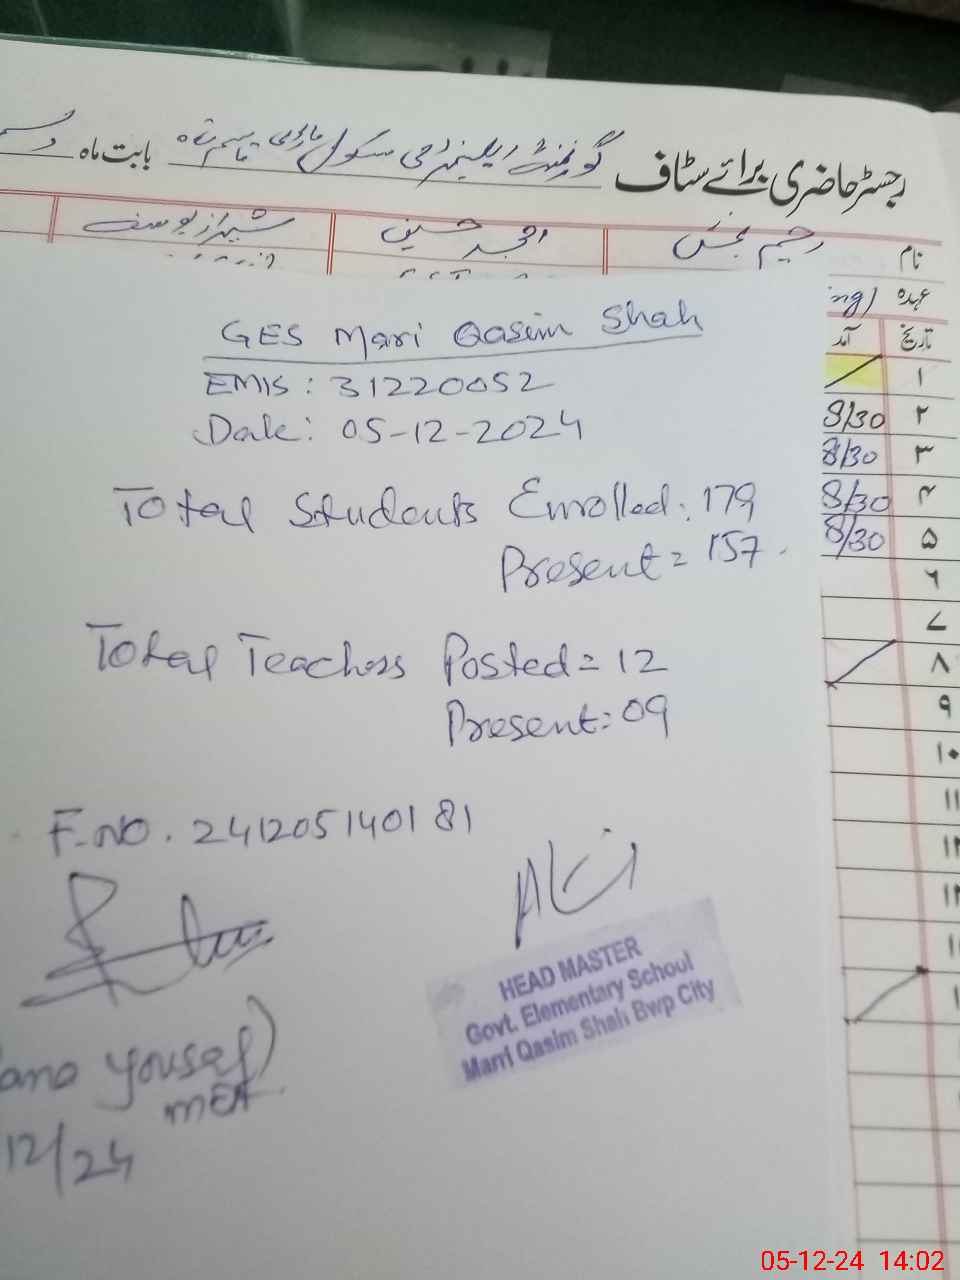 رجسٹر حاضری برائے سٹاف گورنمنٹ ایلیمنٹری سکول ماڑی قاسم شاہ بابت ماہ
نام رحیم بخش امجد حسین شیراز یوسف
عہدہ ing)
تاریخ آمد
۱
۲ 8/30
۳ 8/30
۴ 8/30
۵ 8/30
۶
۷
۸
۹
۱۰
۱۱
۱۲
GES Mari Qasim Shah
EMIS: 31220052
Date: 05-12-2024
Total Students Enrolled: 179
Present = 157.
Total Teachers Posted = 12
Present: 09
F.NO. 241205140181
HEAD MASTER
Govt. Elementary School
Marri Qasim Shah Bwp City
yousaf)
MEA
12/24
05-12-24 14:02